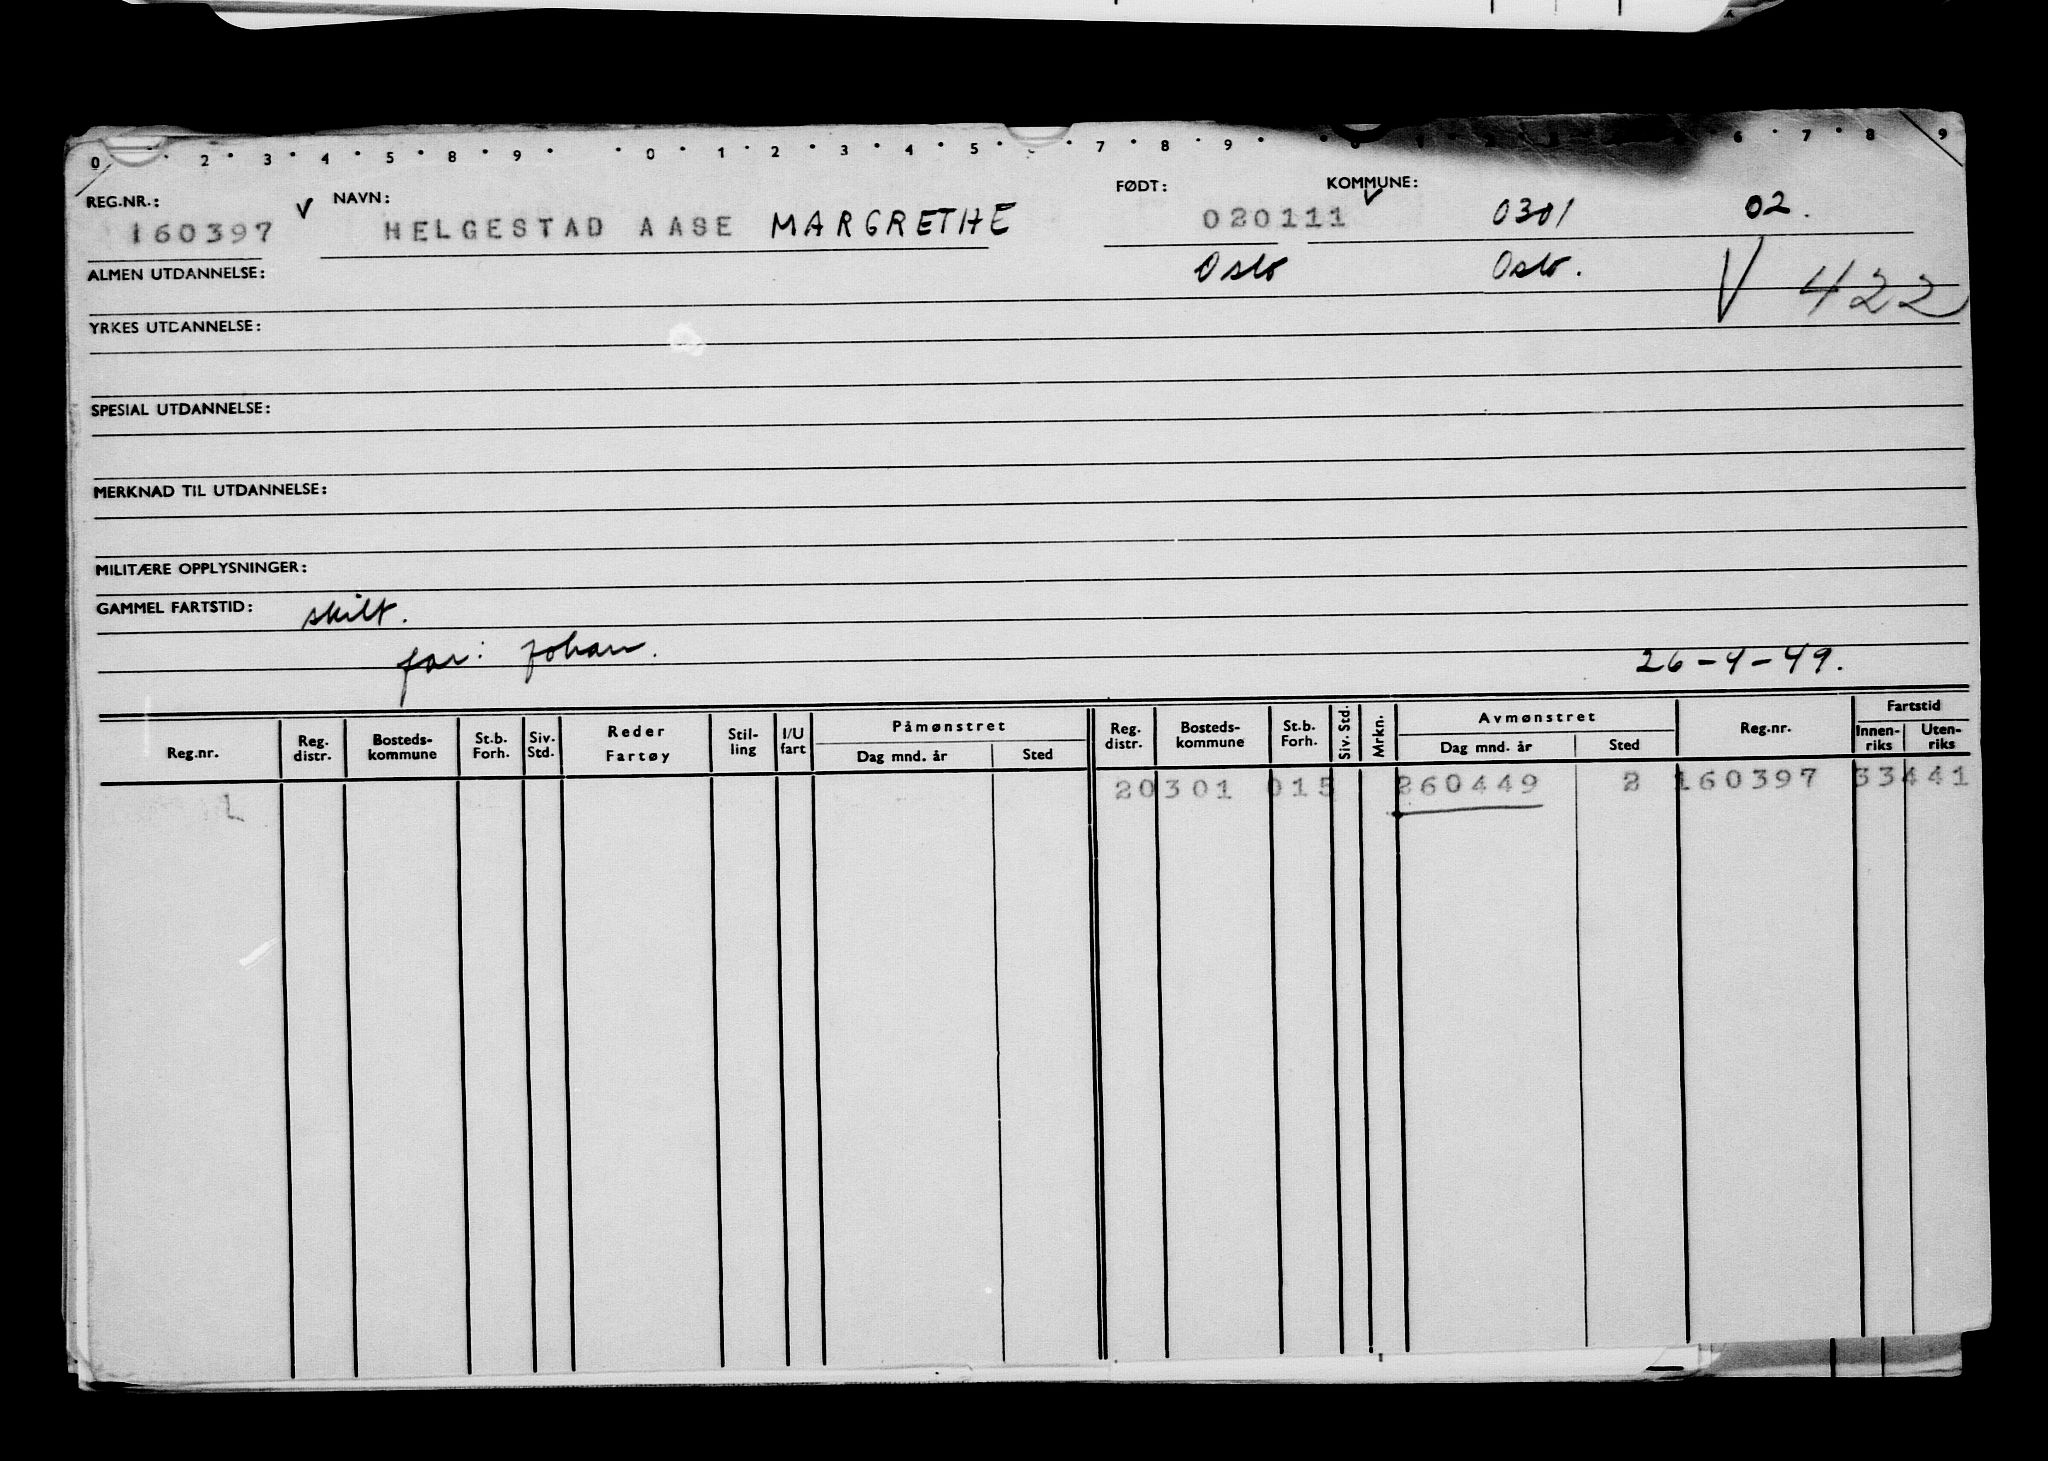 0 2 3 4 5 8 9 0 1 2 3 4 5 7 8 9 6 7 8 9
REG.NR.: V NAVN: FØDT: KOMMUNE: V
160397 HELGESTAD AASE MARGRETHE 020111 0301 02.
ALMEN UTDANNELSE: Oslo Oslo. V 422
YRKES UTDANNELSE:
SPESIAL UTDANNELSE:
MERKNAD TIL UTDANNELSE:
MILITÆRE OPPLYSNINGER:
GAMMEL FARTSTID: skilt.
far: Johan. 26-4-49.
Reg.nr. Reg. distr. Bosteds-kommune St.b. Forh. Siv. Std. Reder Fartøy Stil-ling I/U fart Påmønstret Dag mnd. år Sted Reg. distr. Bosteds-kommune St.b. Forh. Siv. Std. Mrkn. Avmønstret Dag mnd. år Sted Reg.nr. Fartstid Innen-riks Uten-riks
L 20301 015 260449 2 160397 33441